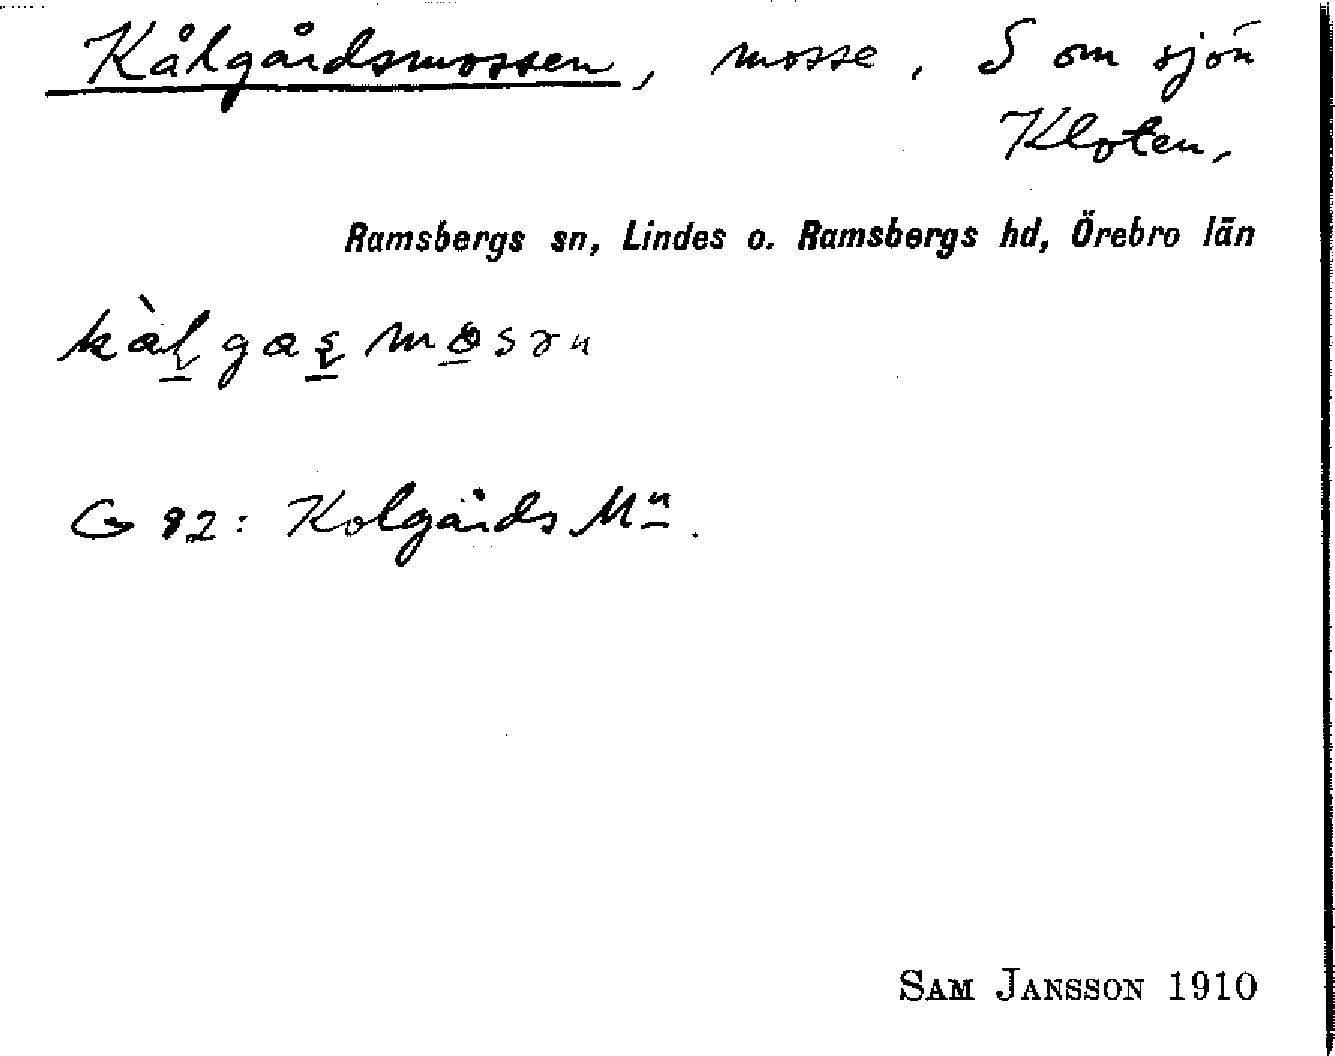 Kålgårdsmossen, mosse, S om sjön
Kloten,
Ramsbergs sn, Lindes o. Ramsbergs hd, Örebro län
kàlgasmosən
G 92: Kolgårds Mn.
SAM JANSSON 1910